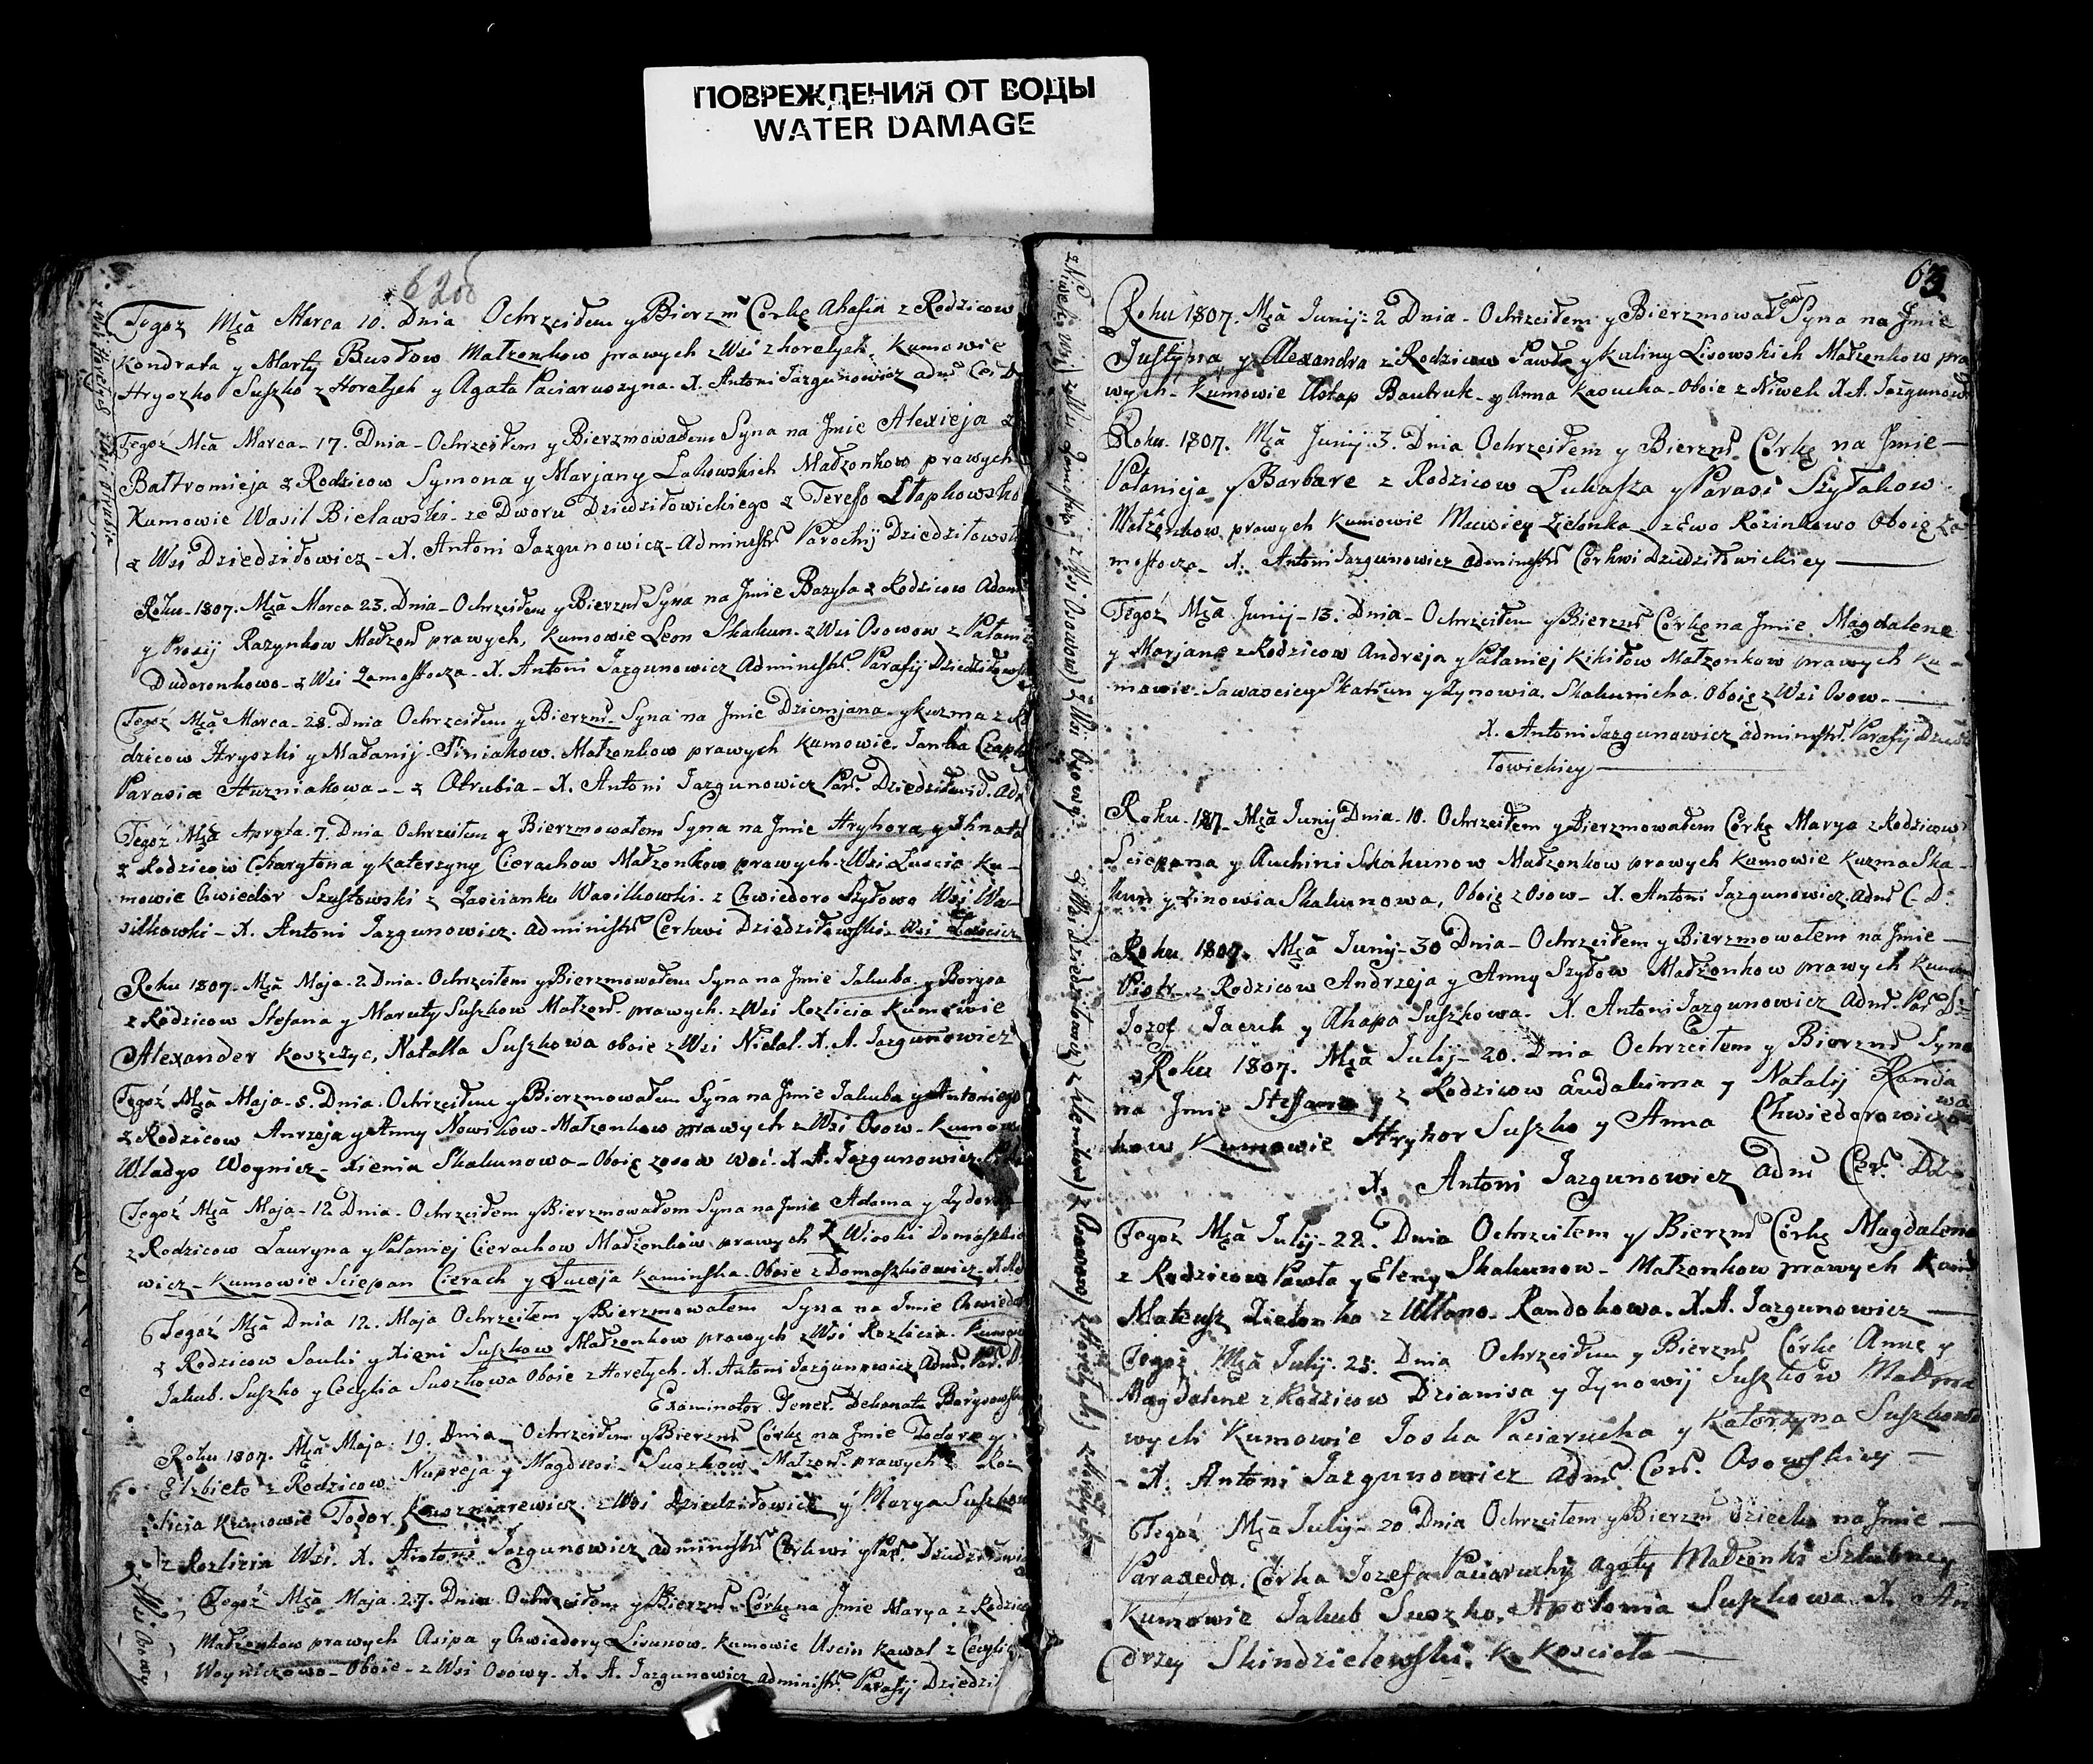 ПОВРЕЖДЕНИЯ ОТ ВОДЫ
WATER DAMAGE
Tegoż Mca Marca 10. Dnia Ochrzciłem y Bierzm Córkę Ahafia z Rodzicow
Kondrata y Marty Busłow Małzonkow prawych z Wsi z horełych. Kumowie
Hryszko Suszko z Horełych y Agata Paciaruszyna. X. Antoni Jazgunowicz adm Cer D
Tegoż Mca Marca - 17. Dnia - Ochrzciłem y Bierzmowałem Syna na Jmie Alexieja z
Bałtromieja z Rodzicow Symona y Marjany Lakowskich Małzonkow prawych
Kumowie Wasil Bielawski - ze Dworu Dziedziłowickiego z Teresso
z Wsi Dziedziłowicz - X. Antoni Jazgunowicz - Administr Parochij
Roku - 1807. Mca Marca 23. Dnia - Ochrzciłem y Bierzm Syna na Jmie Bazyla z Rodzicow Adam
y Prosij Razynkow Małzon prawych, Kumowie Leon Skakun. z Wsi Osowow z Pałani
Dudaronkowo - z Wsi Zamostocza - X. Antoni Jazgunowicz Administr. Parafij
Tegoż Mca Marca - 28. Dnia Ochrzciłem y Bierzm - Syna na Jmie Dziemjana y kuzma z Ro
dzicow Hryszki y Małanij - Piniakow. Małzonkow prawych Kumowie. Janka Czapl
Parasia Huzniakowa - - z Otrubia - X. Antoni Jazgunowicz Par. Dziedziłowic. Adm
Tegoż Mca Apryla. 7. Dnia Ochrzciłem y Bierzmowałem Syna na Jmie Hryhora y Ihnata
z Rodzicow Charytona y Katerzyny Cierachow Małzonkow prawych z Wsi Łuscia Ku -
mowie Chwiedor Szustowski z Zascianku Wasilkowki. z Chwiedoro Szyłowo Wsi Wa
silkowki - X. Antoni Jazgunowicz. administr Cerkwi Dziedziłowski. Wsi
Roku 1807 - Mca Maja - 2 Dnia. Ochrzciłem y Bierzmowałem Syna na Jmie Jakuba y Borysa
z Rodzicow Stefana y Maruty Suszkow Małzon. prawych. z Wsi Rozlicia Kumowie
Alexander Koszczyc, Natalla Suszkowa oboie z Wsi Nidal. X. A. Jazgunowicz
Tegoż Mca Maja - 5. Dnia. Ochrzciłem y Bierzmowałem Syna na Jmie Jakuba y Antoniego
z Rodzicow Anrzeja y Anny Nowikow - Małzonkow prawych z Wsi Osow - Kumow
Władys Woynicz - Xienia Skakunowa - Oboie Wsi. X. A. Jazgunowicz
Tegoż Mca Maja - 12 Dnia - Ochrzciłem y Bierzmowałem Syna na Jmie Adama y Izydora
z Rodzicow Lauryna y Pałaniej Cierachow Małzonkow prawych z Wioski Domaszkie
wicz - Kumowie Sciepan Cierach y Łucyja Kaminska - Oboie z Domaszkiewicz -
Tegoż Mca Dnia 12. Maja Ochrzciłem y Bierzmowałem Syna na Jmie Chwied
z Rodzicow Sauki y Xieni Suszkow Małzonkow prawych z Wsi Rozlicia. Kumow
Jakub. Suszko y Cecylia Suszkowa Oboie z Horełych. X. Antoni Jazgunowicz Adm. Par. D
Examinator Gener. Dekanatu Borysowski
Roku 1807. Mca Maja. 19. Dnia - Ochrzciłem y Bierzm - Córkę na Jmie Todore y
Elzbieto z Rodzicow Nupreja y Magduni - Suszkow - Małzon. prawych z Roz
licia Kumowie Todor Kawzniarewicz. z Wsi Dziedziłowicz y Marya Suszkow
z Rozlizia Wsi. X. Antoni Jazgunowicz administr Cerkwi y Par.
Tegoż Mca Maja. 27. Dnia Ochrzciłem y Bierzm - Córkę na Jmie Marya z Rodzic
Małzonkow prawych Asipa y Chwiedory Lisunow. Kumowie Uscin Kawal z Cecylią
Woyniczowo - Oboie - z Wsi Osowy - X. A. Jazgunowicz administr. Parafij Dziedzi
63
Roku 1807. Mca Junij - 2 Dnia - Ochrzciłem y Bierzmował Syna na Jmie
Justyna y Alexandra z Rodzicow Pawła y Kuliny Lisowskich Małzonkow pra
wych - Kumowie Astap Bautruk - y Anna Kasucha - Oboie z Niwek X. A. Jazgunow
Roku. 1807. Mca Junij. 3. Dnia Ochrzciłem y Bierzm - Córkę na Jmie -
Pałanieja y Barbare z Rodzicow Lukasza y Parasi Szyłakow
Małzonkow prawych Kumowie Maciey Zielonka - z Ewo Rozinkowo Oboie Za
mostocza - X. Antoni Jazgunowicz administr Cerkwi Dziedziłowickiey
Tegoż Mca Junij - 13. Dnia - Ochrzciłem y Bierzm Córkę na Jmie Magdalene
y Marjane z Rodzicow Andreja y Pałaniej Kikiłow Małzonkow prawych Ku -
mowie - Sawasciey Skakun y Zynowia. Skakunicha. Oboie z Wsi Osow -
X. Antoni Jazgunowicz administr. Parafij Dziedzi
łowickiey
Roku - 187 - Mca Junij Dnia - 18. Ochrzciłem y Bierzmowałem Córkę Marya z Rodzicow
Sciepana y Auchini Skakunow Małzonkow prawych Kumowie Kuzma Ska -
kun y Zinowia Skakunowa, Oboie z Osow - X. Antoni Jazgunowicz Adm C - D.
Roku 1807. Mca Junij - 30 Dnia - Ochrzciłem y Bierzmowałem na Jmie -
Piotr - z Rodzicow Andrzeja y Anny Szyłow Małzonkow prawych Kumow
Jozef Jacuk y Ahapa Suszkowa - X. Antoni Jazgunowicz Adm. Par Dz
Roku 1807. Mca Julij - 20. Dnia Ochrzciłem y Bierzm Syna
na Jmie Steffana z Rodzicow Audakima y Natalij Randa
kow Kumowie Hryhor Suszko y Anna Chwiedorowiczowa
X. Antoni Jazgunowicz adm Cer. Dz
Tegoż Mca Julij - 22. Dnia Ochrzciłem y Bierzm Córkę Magdalena
z Rodzicow Pawła y Eleny Skakunow - Małzonkow prawych Kum
Mateusz Zielonka z Ullano - Randakowa. X. A. Jazgunowicz
Tegoż Mca Julij. 25. Dnia Ochrzciłem y Bierzm Córkę Anne y
Magdalene z Rodzicow Dzianisa y Zynowij Suszkow Małzon
wych Kumowie Joska Paciarucha y Katerzyna Suszkowa
- X. Antoni Jazgunowicz Adm. Cer. Osowskiey -
Tegoż Mca Julij - 20 Dnia Ochrzciłem y Bierzm dziecko na Jmie -
Paraxeda. Córka Jozefa Paciaruchy Agaty Małzonki Szlubney
Kumowie Jakub Suszko. Apolonia Suszkowa X. An
drzey Skindzielewski. K. Kosciola